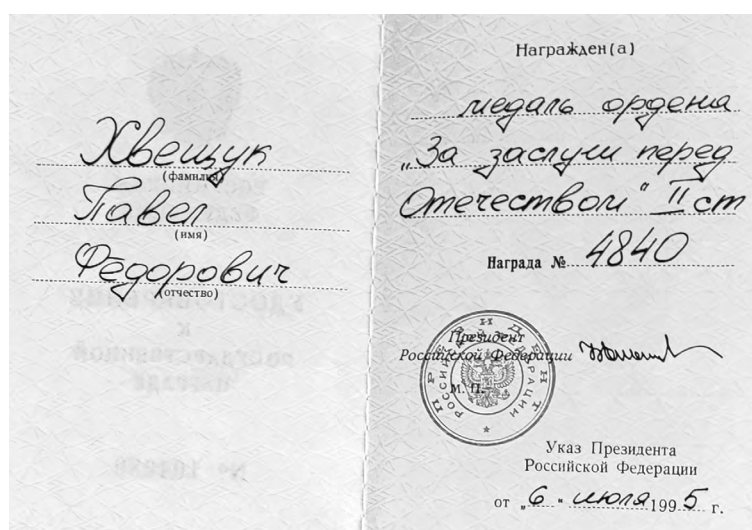 Хвещук
(фамилия)
Павел
(имя)
Фёдорович
(отчество)
Награжден(а)
медаль ордена
„За заслуги перед
Отечеством“ II ст
Награда № 4840
Президент
Российской Федерации
М. П.
ПРЕЗИДЕНТ
РОССИЙСКОЙ ФЕДЕРАЦИИ
Указ Президента
Российской Федерации
от „6“ июля 1995 г.